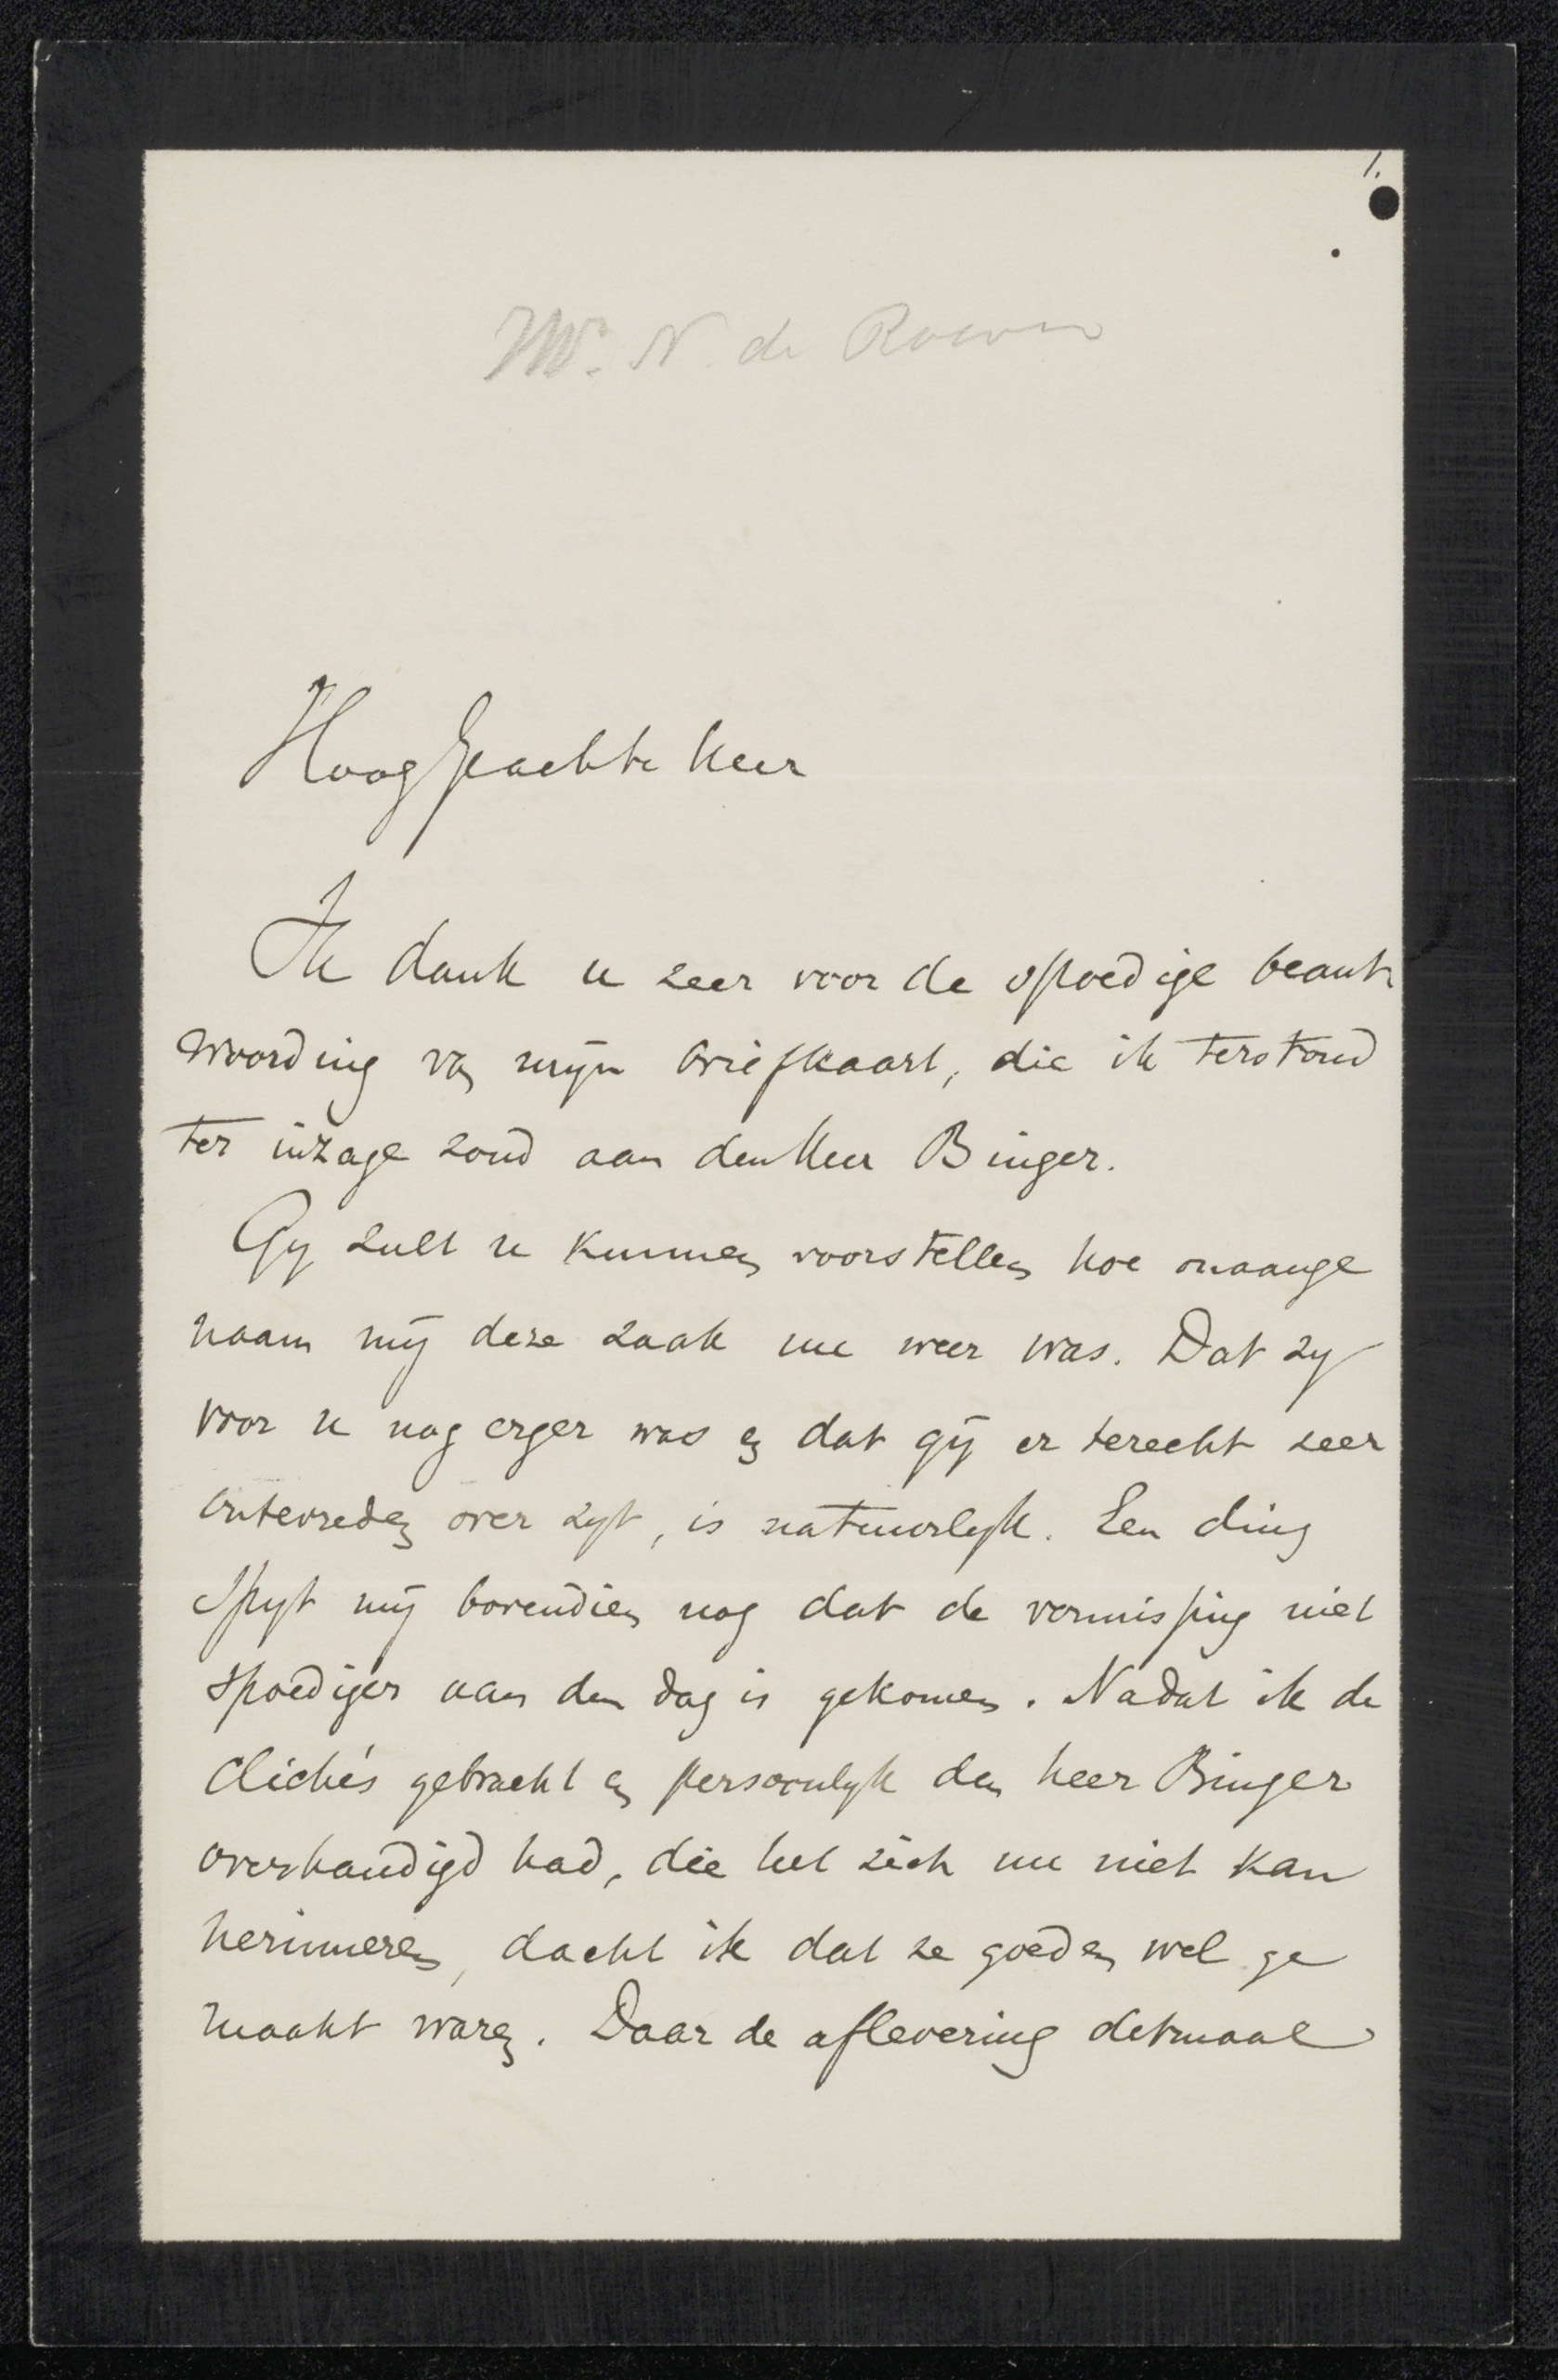 1.
Mr. N. de Roever
HoogGeachte heer
Ik dank u zeer voor de spoedige beant
woording van mijn briefkaart, die ik terstond
ter inzage zond aan den heer Binger.
Gy zult u kunnen voorstellen hoe onaange
naam mij deze zaak nu weer was. Dat zy
voor u nog erger was en dat gij er terecht zeer
ontevreden over zyt, is natuurlyk. Een ding
spyt mij bovendien nog dat de vermissing niet
spoediger aan den dag is gekomen. Nadat ik de
clichés gebracht en persoonlyk den heer Binger
overhandigd had, die het zich nu niet kan
herinneren, dacht ik dat ze goed en wel ge
maakt waren. Daar de aflevering ditmaal